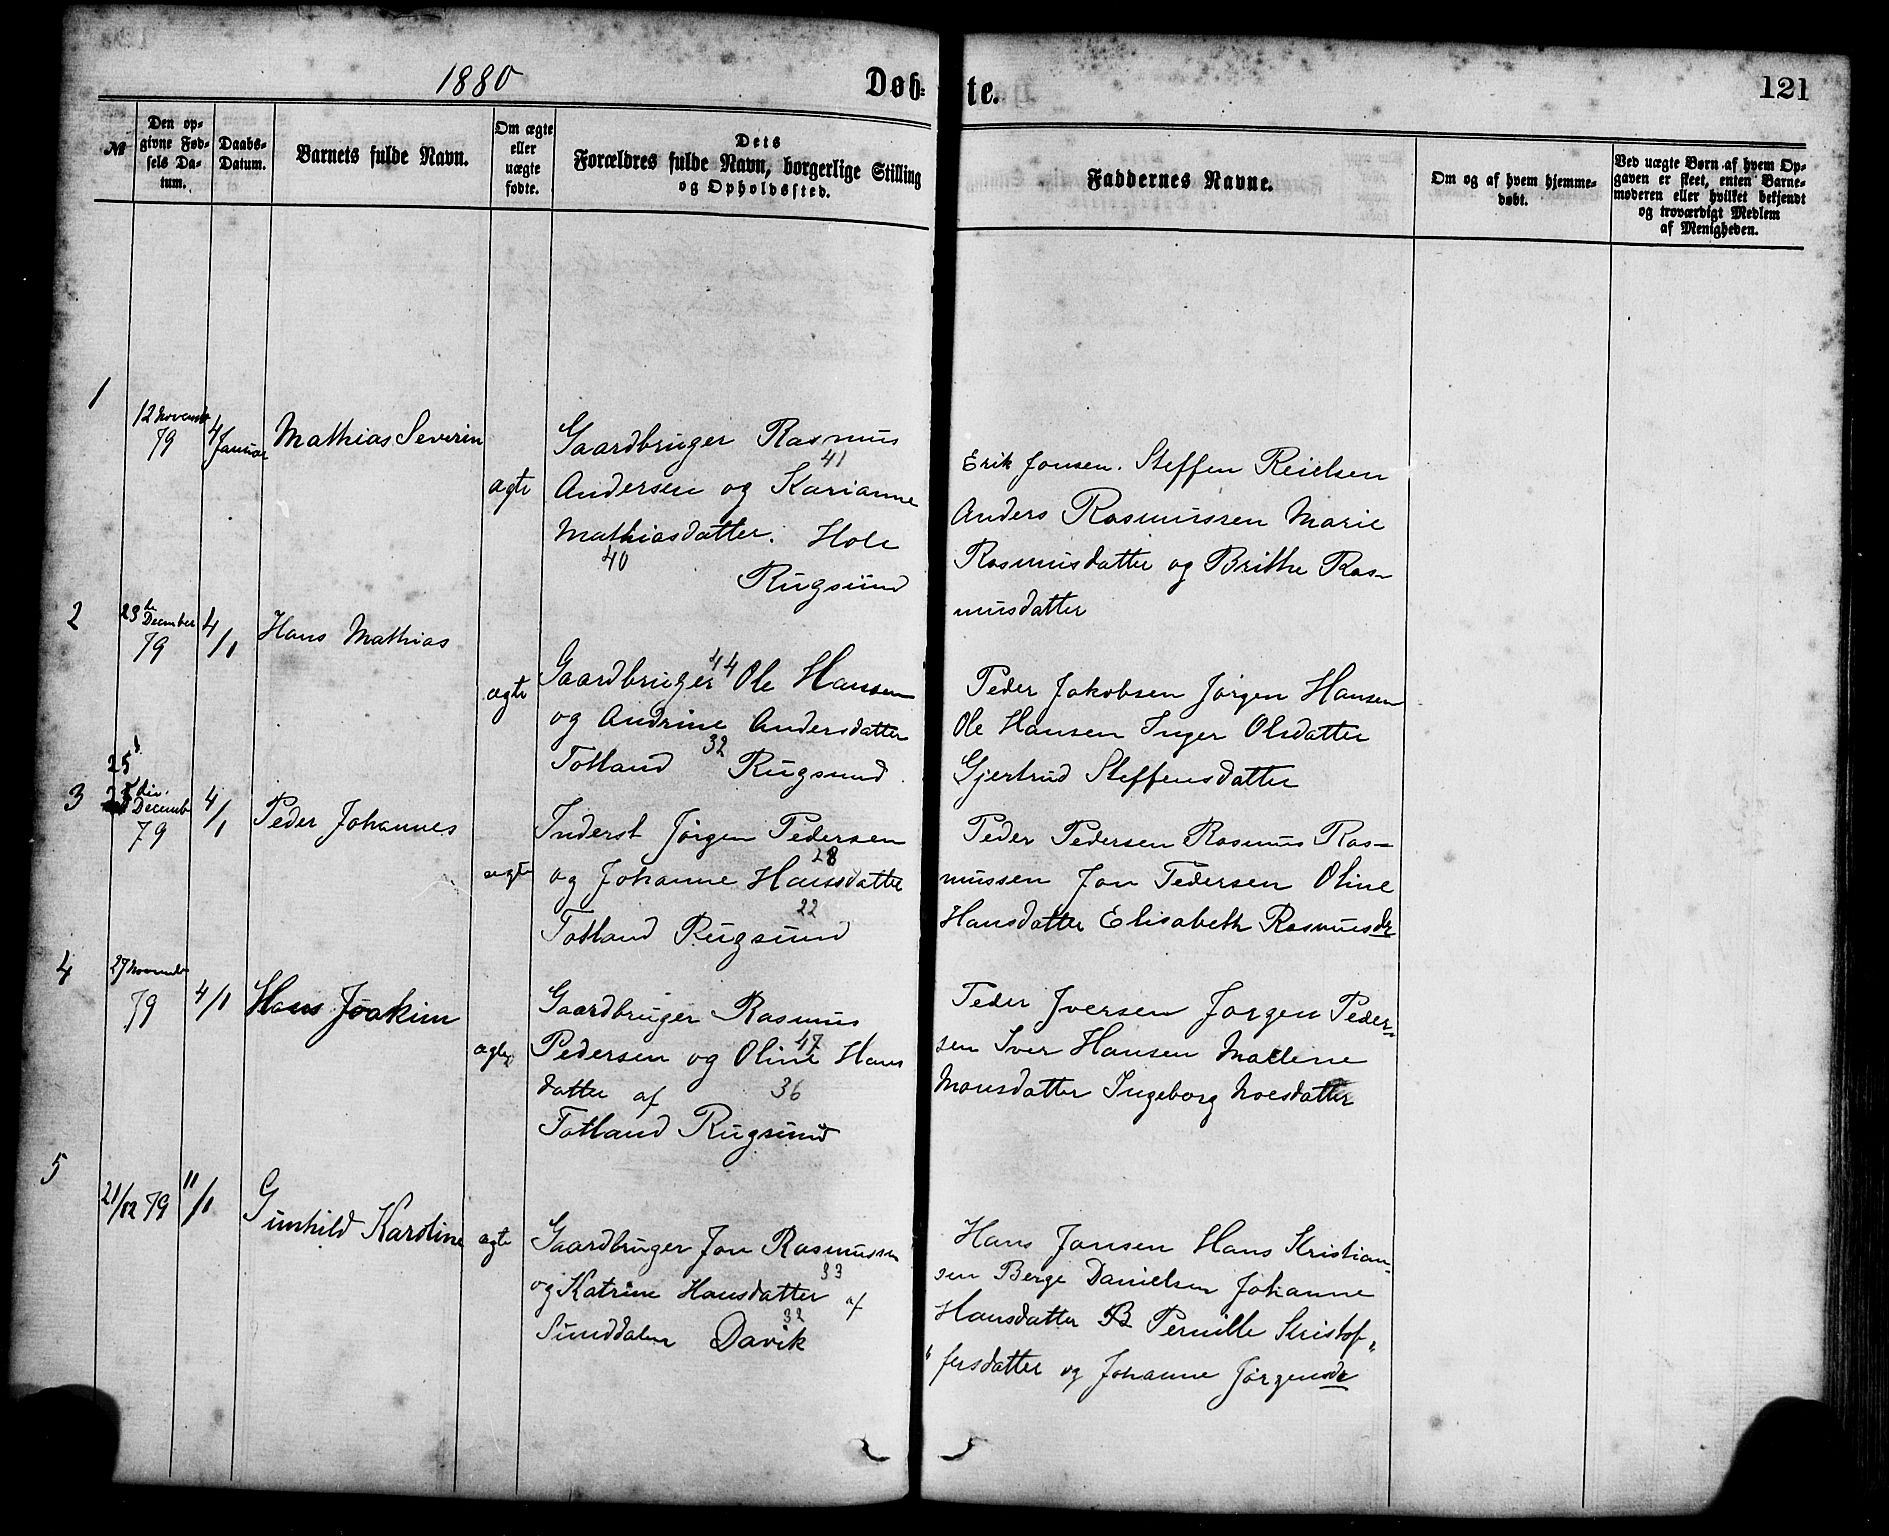 1880 Døb- te. 121
№
Den op-
givne Fød-
sels Da-
tum.
Daabs-
Datum.
Barnets fulde Navn.
Om ægte
eller
uægte
fødte.
Dets
Forældres fulde Navn, borgerlige Stilling
og Opholdssted.
Faddernes Navne.
Om og af hvem hjemme-
døbt.
Ved uægte Børn af hvem Op-
gaven er skeet, enten Barne-
moderen eller hvilket bekjendt
og troværdigt Medlem
af Menigheden.
1
12 Novemb
79
4
Januar
Mathias Severin
ægte
Gaardbruger Rasmus
41
Andersen og Karianne
Mathiasdatter. Hole
40
Rugsund
Erik Jonsen. Steffen Reielsen
Anders Rasmussen Marie
Rasmusdatter og Brithe Ras-
musdatter
2
23de December
79
4/1
Hans Mathias
ægte
Gaardbruger 44 Ole Hansen
og Andrine Andersdatter
32
Totland Rugsund
Peder Jakobsen Jørgen Hansen
Ole Hansen Inger Olsdatter
Gjertrud Steffensdatter
3
25
Decemb
79
4/1
Peder Johannes
ægte
Inderst Jørgen Pedersen
28
og Johanne Hansdatter
22
Totland Rugsund
Peder Pedersen Rasmus Ras-
mussen Jon Pedersen Oline
Hansdatter Elisabeth Rasmusdr
4
27 November
79
4/1
Hans Joakim
ægte
Gaardbruger Rasmus
47
Pedersen og Oline Hans
datter af 36
Totland Rugsund
Peder Iversen Jørgen Peder-
sen Iver Hansen Mallene
Monsdatter Ingeborg Moesdatter
5
21/12 79
11/1
Gunhild Karoline
ægte
Gaardbruger Jon Rasmussen
33
og Katrine Hansdatter af
32
Sunddalen Davik
Hans Jansen Hans Kristian-
sen Berge Danielsen Johanne
Hansdatter B Pernille Kristof„
„fersdatter og Johanne Jørgensdr